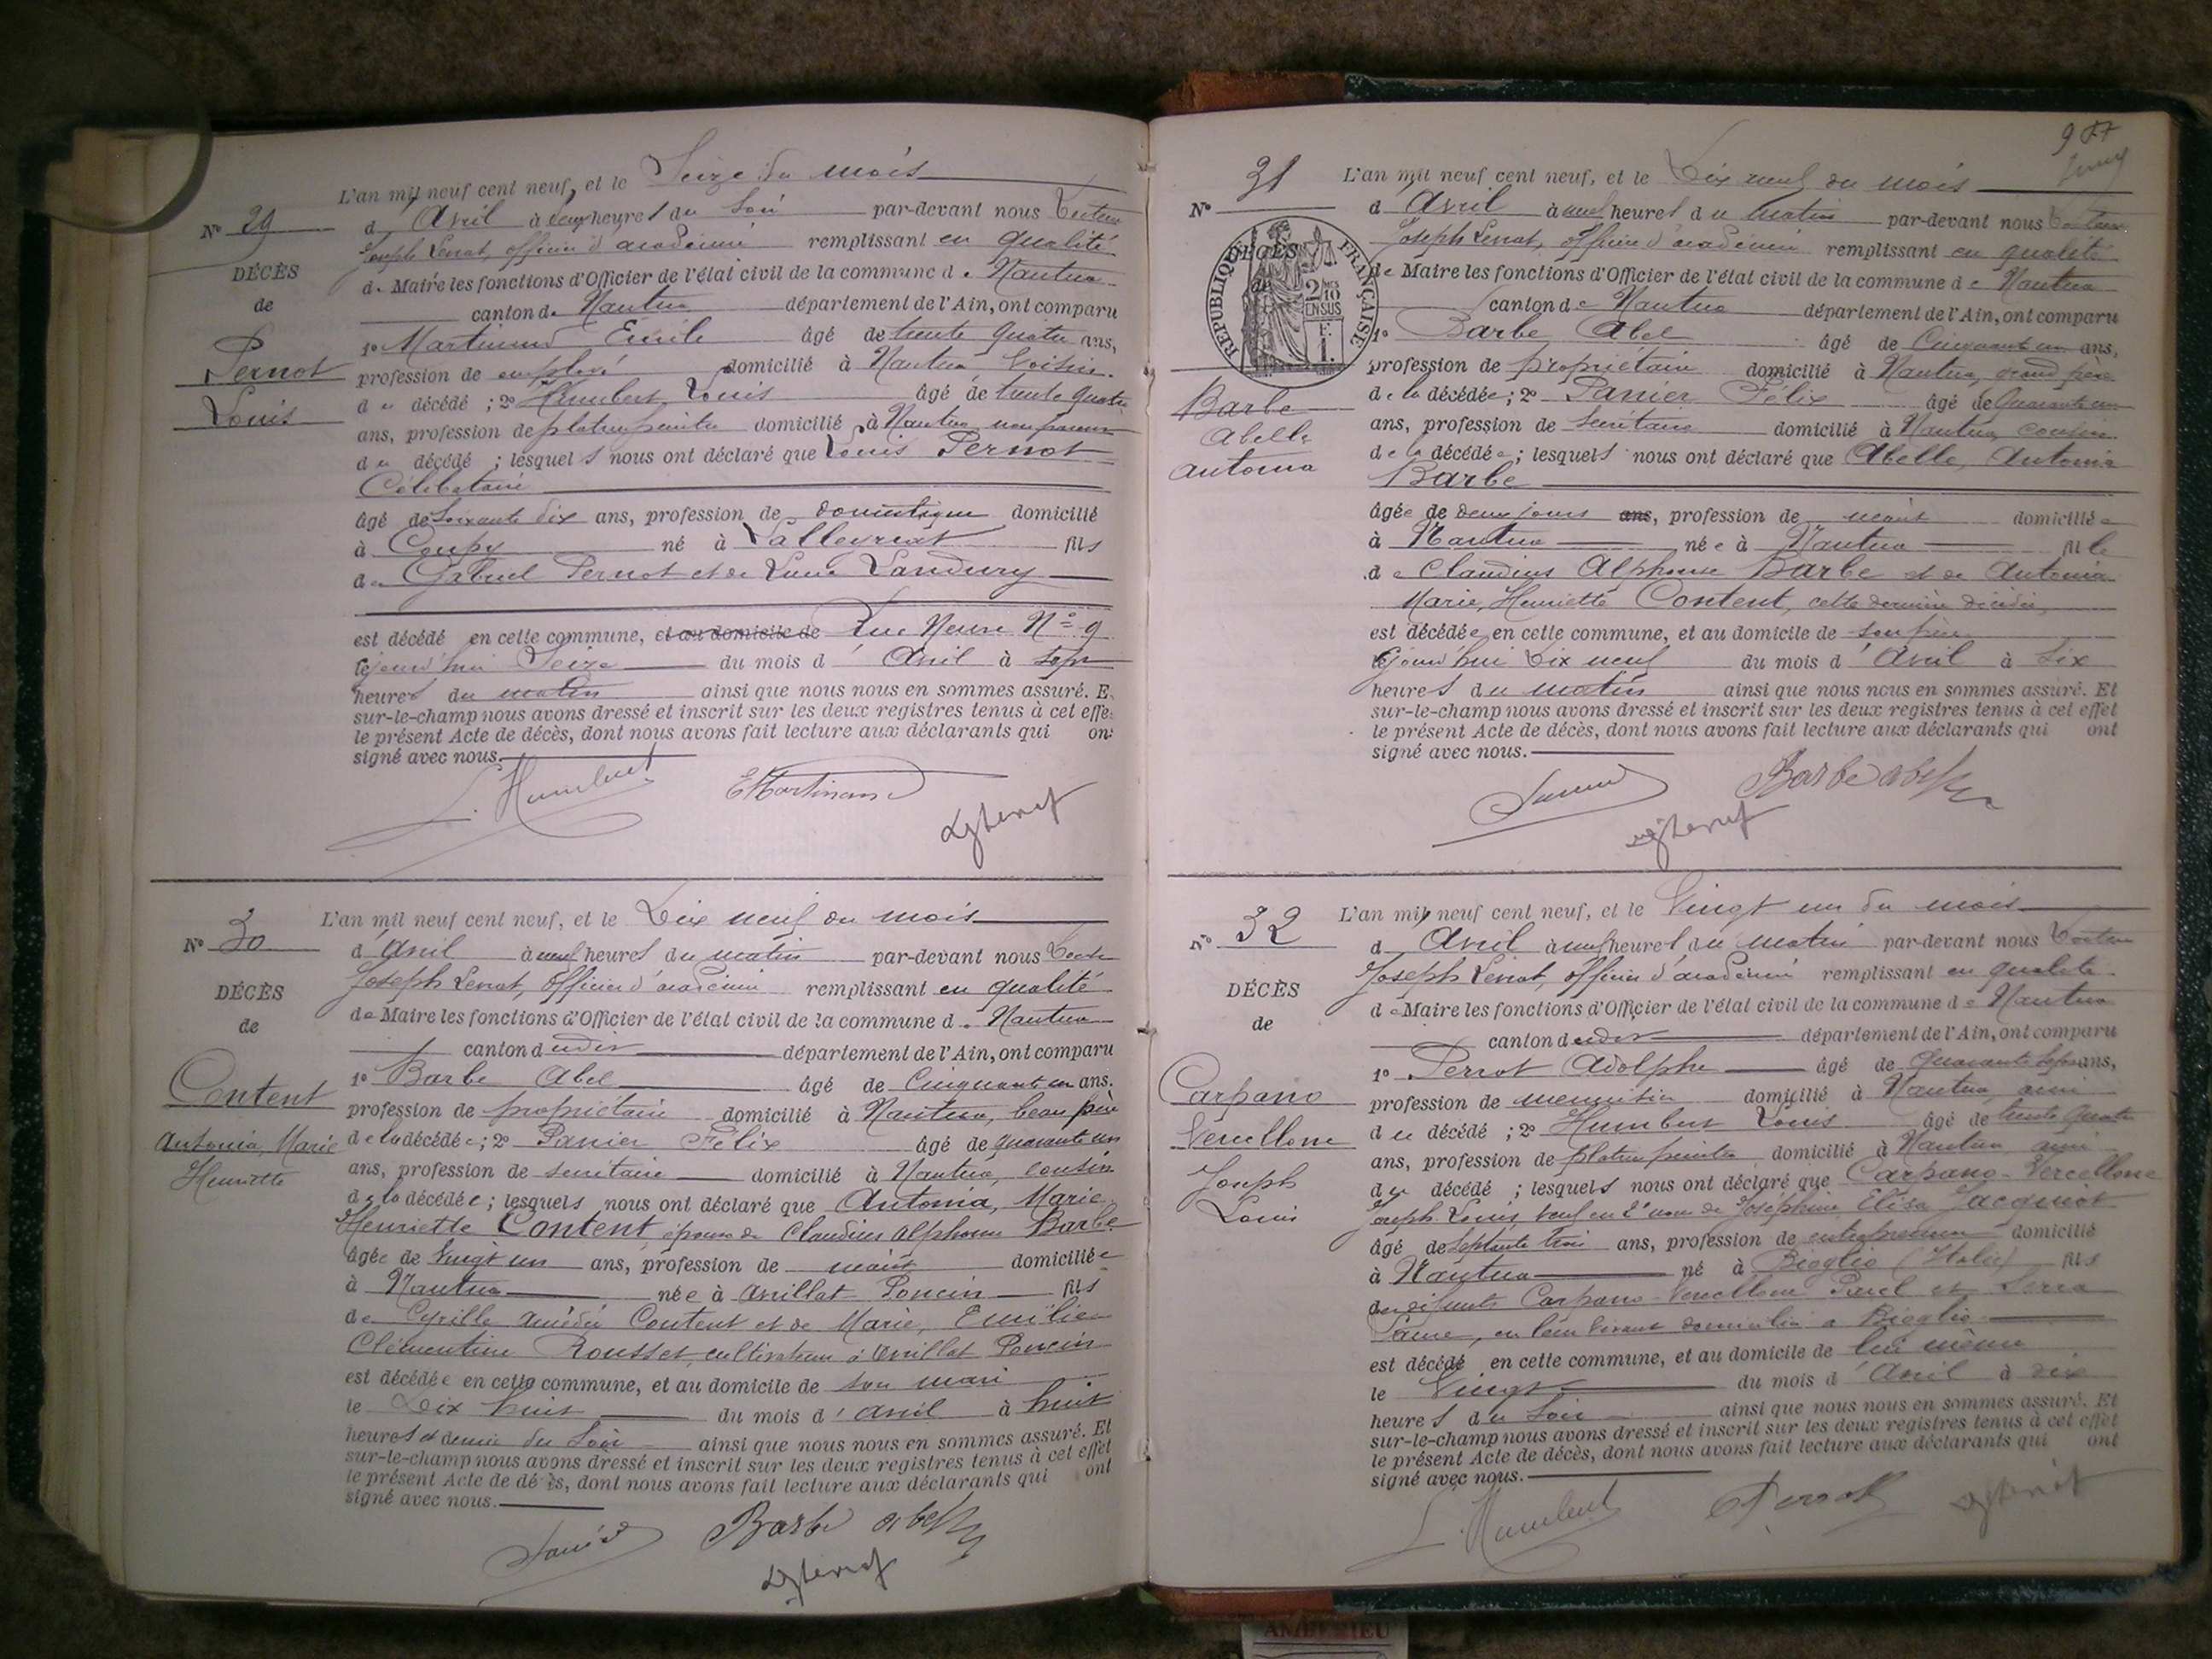 L'an mil neuf cent neuf, et le Seize du mois
No 29
d'Avril à deux heures du Soir par-devant nous
Joseph Lenat, officier d'académie remplissant en qualité
DÉCÈS
de Maire les fonctions d'Officier de l'état civil de la commune de Nantua
de
canton de Nantua département de l'Ain, ont comparu
1º Martinand Emile âgé de trente quatre ans,
Pernot
profession de employé domicilié à Nantua Voisin
Louis
du décédé ; 2º Humbert Louis âgé de trente quatre
ans, profession de platrier peintre domicilié à Nantua non parent
du décédé ; lesquels nous ont déclaré que Louis Pernot
Célibataire
âgé de Soixante dix ans, profession de domestique domicilié
à Coupy né à Lalleyriat fils
de Gabriel Pernot et de Landury
est décédé en cette commune, et au domicile de Rue Neuve Nº 9
le jourd'hui Seize du mois d'Avril à sept
heures du matin ainsi que nous nous en sommes assuré. E
sur-le-champ nous avons dressé et inscrit sur les deux registres tenus à cet effe
le présent Acte de décès, dont nous avons fait lecture aux déclarants qui on
signé avec nous.
L. Humbert EMartinand
No 30
L'an mil neuf cent neuf, et le Dix neuf du mois
d'Avril à neuf heures du matin par-devant nous
Joseph Lenat, officier d'académie remplissant en qualité
DÉCÈS
de Maire les fonctions d'Officier de l'état civil de la commune de Nantua
de
canton dudit département de l'Ain, ont comparu
1º Barbe Abel âgé de Cinquante un ans.
Content
profession de propriétaire domicilié à Nantua, beau père
Antonia, Marie
de la décédée ; 2º Panier Félix âgé de quarante un
Henriette
ans, profession de secrétaire domicilié à Nantua, cousin
de la décédée ; lesquels nous ont déclaré que Antonia, Marie
Henriette Content épouse de Claudius Alphonse Barbe
âgée de vingt un ans, profession de domiciliée
à Nantua née à Poncin fils
de Cyrille Amédée Content et de Marie, Emilie
Clémentine Rousset, cultivateurs à Poncin
est décédée en cette commune, et au domicile de son mari
le Dix huit du mois d'avril à huit
heures et demie du Soir ainsi que nous nous en sommes assuré. Et
sur-le-champ nous avons dressé et inscrit sur les deux registres tenus à cet effet
le présent Acte de décès, dont nous avons fait lecture aux déclarants qui ont
signé avec nous.
Panier Barbe abel
31
L'an mil neuf cent neuf, et le Dix neuf du mois
No
d'Avril à neuf heures du matin par-devant nous
Joseph Lenat, officier d'académie remplissant en qualité
DÉCÈS
de
RÉPUBLIQUE FRANÇAISE
2 MES 10 EN SUS
de Maire les fonctions d'Officier de l'état civil de la commune de Nantua
canton de Nantua département de l'Ain, ont comparu
1º Barbe Abel âgé de Cinquante un ans,
profession de propriétaire domicilié à Nantua, grand père
Barbe
de la décédée ; 2º Panier Félix âgé de Quarante un
Abelle
ans, profession de Secrétaire domicilié à Nantua cousin
Antonia
de la décédée ; lesquels nous ont déclaré que Abelle, Antonia
Barbe
âgée de deux jours ans, profession de domiciliée
à Nantua née à Nantua fille
de Claudius Alphonse Barbe et de Antonia
Marie, Henriette Content, cette dernière décédée,
est décédée en cette commune, et au domicile de son père
le jourd'hui Dix neuf du mois d'Avril à six
heures du matin ainsi que nous nous en sommes assuré. Et
sur-le-champ nous avons dressé et inscrit sur les deux registres tenus à cet effet
le présent Acte de décès, dont nous avons fait lecture aux déclarants qui ont
signé avec nous.
Panier Barbe abel
No 32
L'an mil neuf cent neuf, et le Vingt un du mois
d'Avril à neuf heures du matin par-devant nous
Joseph Lenat, officier d'académie remplissant en qualité
DÉCÈS
de Maire les fonctions d'Officier de l'état civil de la commune de Nantua
de
canton dudit département de l'Ain, ont comparu
1º Perrot Adolphe âgé de Quarante Sept ans,
Carpano
profession de menuisier domicilié à Nantua, ami
Vercellone
du décédé ; 2º Humbert Louis âgé de trente quatre
Joseph
ans, profession de platrier peintre domicilié à Nantua ami
Louis
du décédé ; lesquels nous ont déclaré que Carpano-Vercellone
Joseph Louis, veuf en 2e de Joséphine Elisa Jacquiot
âgé de Septante trois ans, profession de entrepreneur domicilié
à Nantua né à Bioglio (Italie) fils
des défunts Carpano-Vercellone et Serra
en leur vivant domiciliés à Bioglio
est décédé en cette commune, et au domicile de lui même
le Vingt du mois d'Avril à dix
heures du Soir ainsi que nous nous en sommes assuré. Et
sur-le-champ nous avons dressé et inscrit sur les deux registres tenus à cet effet
le présent Acte de décès, dont nous avons fait lecture aux déclarants qui ont
signé avec nous.
L. Humbert Perrot